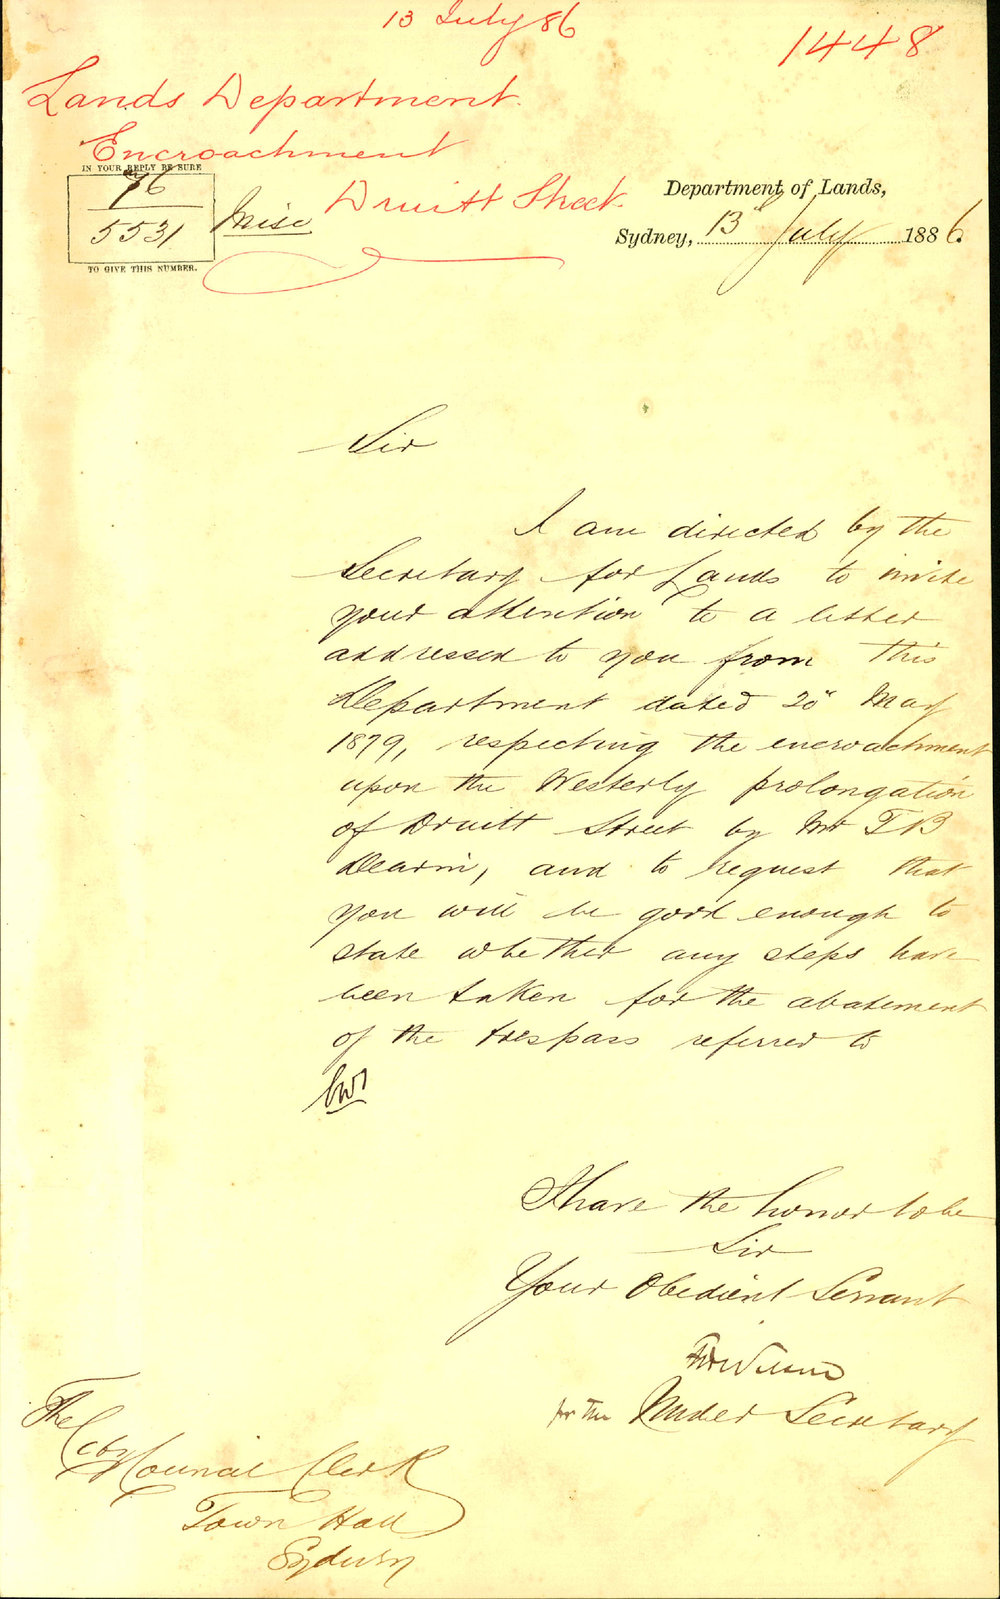 13 July 86
1448
Lands Department
Encroachment
Druitt Street.
IN YOUR REPLY BE SURE
76
5531
TO GIVE THIS NUMBER.
Misc
Department of Lands,
Sydney, 13" July 1886.
Sir
I am directed by the
Secretary for Lands to invite
your attention to a letter
addressed to you from this
Department dated 20" May
1879, respecting the encroachment
upon the Westerly prolongation
of Druitt Street by Mr T B
Dearin, and to request that
you will be good enough to
state whether any steps have
been taken for the abatement
of the trespass referred to
I have the honor to be
Sir
Your Obedient Servant
for the Under Secretary
The
City Council Clerk
Town Hall
Sydney